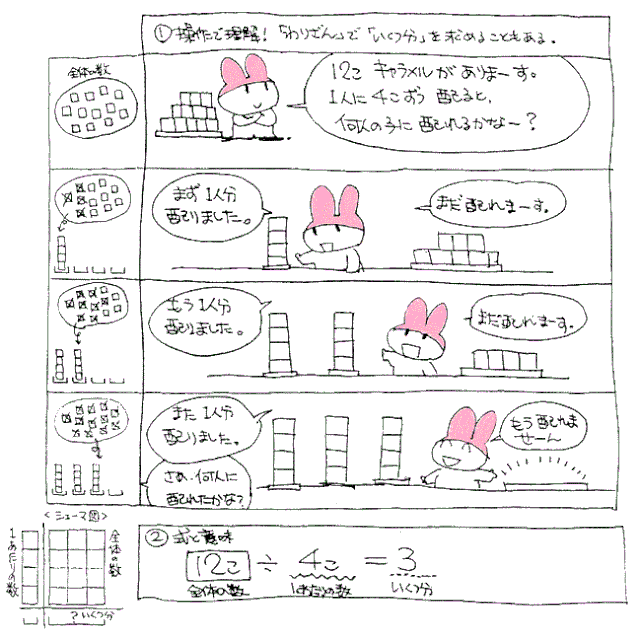 ①操作で理解!「わりざん」で「いくつ分」を求めることもある。
全体の数
12こ キャラメルがありまーす。
1人に4こずつ 配ると、
何人の子に 配れるかなー?
まず 1人分
配りました。
まだ配れまーす。
もう1人分
配りました。
まだ配れまーす。
また 1人分
配りました。
もう配れま
せーん
さあ、何人に
配れたかな?
<シェーマ図>
1あたりの数
全体の数
?いくつ分
②式と意味
12こ ÷ 4こ = 3
全体の数 1あたりの数 いくつ分